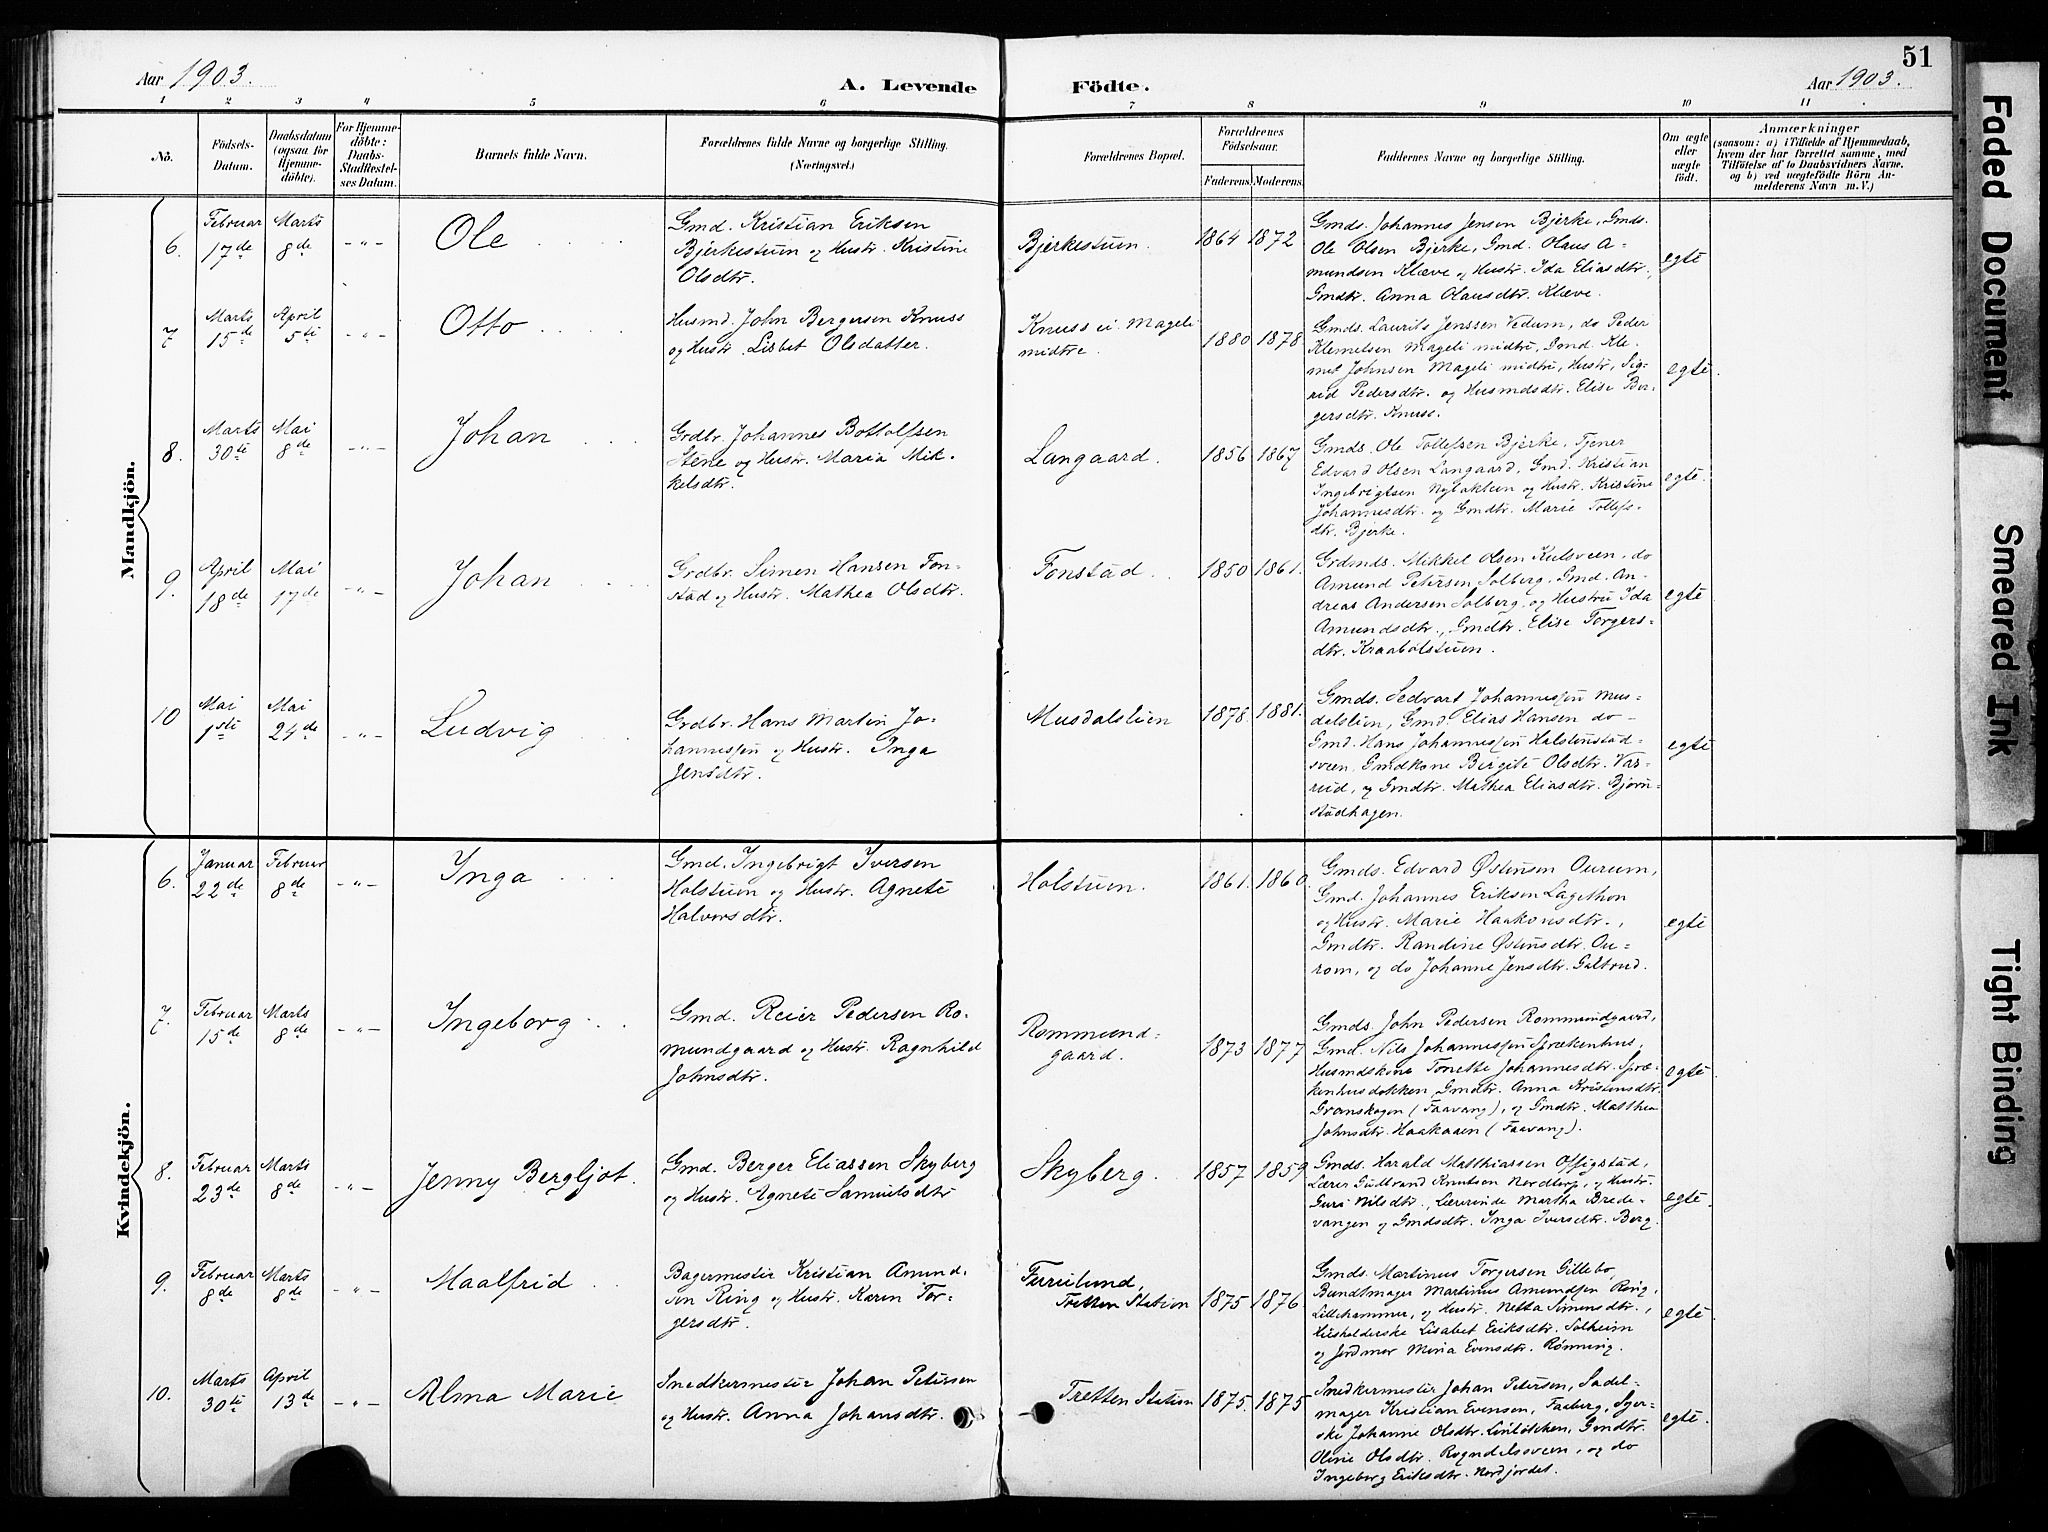 51
Aar 1903.
A. Levende
Födte.
Aar 1903.
1 2 3 4 5 6 7 8 9 10 11
No.
Födsels-
Datum.
Daabsdatum
(ogsaa for
Hjemme-
döbte).
For Hjemme-
döbte:
Daabs-
Stadfæstel-
ses Datum.
Barnets fulde Navn.
Forældrenes fulde Navne og borgerlige Stilling.
(Næringsvei.)
Forældrenes Bopæl.
Forældrenes
Födselsaar.
Faderens.
Moderens.
Faddernes Navne og borgerlige Stilling.
Om ægte
eller
uægte
födt.
Anmærkninger
(saasom: a) i Tilfælde af Hjemmedaab,
hvem der har forrettet samme, med
Tilföielse af to Daabsvidners Navne.
og b) ved uægtefödte Börn An-
melderens Navn m. V.)
Mandkjön.
6.
Februar
17de
Marts
8de
-"-
Ole
Gmd. Kristian Eriksen
Bjerkestuen og Hustr. Kristine
Olsdtr.
Bjerkestuen.
1864
1872
Gmds. Johannes Jensen Bjerke, Gmds.
Ole Olsen Bjerke, Gmd. Olaus A-
mundsen Klæve og Hustr. Ida Eliasdtr.,
Gmdtr. Anna Olausdtr. Klæve.
egte
7
Marts
15de
April
5ti
-"-
Otto
Husmd. John Bergersen Knuss
og Hustr. Lisbet Olsdatter.
Knuss ei Mageli
midtre.
1880
1878
Gmds. Laurits Jenssen Vedum, do Peder
Klemetsen Mageli midtre, Gmd. Kle-
met Johnsen Mageli midtre, Hustr. Sig-
rid Pedersdtr. og Husmdsdtr. Elise Ber-
gersdtr. Knuss.
egte.
8.
Marts
30ti
Mai
8de
-"-
Johan
Grdbr. Johannes Bottolfsen
Stene og Hustr. Maria Mik-
kelsdtr.
Langaard.
1856
1867
Gmds. Ole Tollefsen Bjerke, Tjener
Edvard Olsen Langaard, Gmd. Kristian
Ingebrigtsen Nyløkken og Hustr. Kristine
Johannesdtr. og Gmdtr. Marie Tollefs-
dtr. Bjerke.
egte.
9.
April
18de
Mai
17de
-"-
Johan
Grdbr. Simen Hansen Fon-
stad og Hustr. Mathea Olsdtr.
Fonstad.
1850
1861.
Grdmds. Mikkel Olsen Kulsveen, do
Amund Petersen Solberg, Gmd. An-
dreas Andersen Solberg, og Hustru Ida
Amundsdtr., Gmdtr. Elise Torgers-
dtr. Kraabølstuen.
egte
10
Mai
1ste
Mai
24de
-"-
Ludvig
Grdbr. Hans Martin Jo-
hannessen og Hustr. Inga
Jensdtr.
Musdalslien
1878.
1881.
Gmds. Sedvart Johannessen Mus-
delslien, Gmd. Elias Hansen do -
Gmd. Hans Johannessen Halstenstad-
sveen, Gmdkone Birgite Olsdtr. Var-
rud, og Gmdtr. Mathea Eliasdtr. Bjørn-
stadhagen.
egte
Kvindekjön.
6.
Januar
22de
Februar
8de
-"-
Inga
Gmd. Ingebrigt Iversen
Holstuen og Hustr. Agnete
Halvorsdtr.
Holstuen.
1861.
1860.
Gmds. Edvard Østensen Ourum,
Gmd. Johannes Eriksen Lagethon
og Hustr. Marie Haakonsdtr.,
Gmdtr. Randine Østensdtr. Ou-
rom, og do Johanne Jensdtr. Galtrud.
egte
7.
Februar
15de
Marts
8de
-"-
Ingeborg
Gmd. Reier Pedersen Ro-
mundgaard og Hustr. Ragnhild
Johnsdtr.
Rommund-
gaard.
1873
1877
Gmds. John Pedersen Rommundgaard,
Gmd. Nils Johannessen Sprækenhus,
Husmdskone Tonette Johannesdtr. Spræ-
kenhusløkken, Gmdtr. Anna Kristensdtr.
Granskogen (Faavang), og Gmdtr. Matthea
Johnsdtr. Haakaaen (Faavang).
egte.
8.
Februar
23de
Marts
8de
-"-
Jenny Bergljot.
Gmd. Berger Eliassen Skyberg
og Hustr. Agnete Samuelsdtr
Skyberg.
1857
1859
Gmds. Harald Matthiassen Offigstad,
Lærer Gulbrand Knutson Nordtorp, og Hustr.
Guri Nilsdtr., Lærerinde Martha Brede-
vangen og Gmdsdtr. Inga Iversdtr. Berg.
egte.
9.
Februar
8de
Marts
8de
-"-
Maalfrid
Bagermester Kristian Amund-
sen Ring og Hustr. Karen Tor-
gersdtr.
Furulund,
Tretten Station
1875
1876
Gmds. Martinus Torgersen Gillebo,
Bundtmager Martinus Amundsen Ring,
Lillehammer, og Hustr. Netta Simensdtr.,
Husholderske Lisabet Eriksdtr. Solheim
og Jordmor Mina Evensdtr. Rønning.
egte.
10.
Marts
30ti
April
13de
-"-
Alma Marie
Snedkermester Johan Petersen
og Hustr. Anna Johansdtr.
Tretten Station
1875.
1875
Snedkermester Johan Petersen, Sadel-
mager Kristian Evensen, Faaberg, Syer-
ske Johanne Olsdtr. Linløkken, Gmdtr.
Oline Olsdtr. Rogndelssveen, og do
Ingeborg Eriksdtr. Nordjordet.
egte.
Faded Document
Smeared Ink
Tight Binding